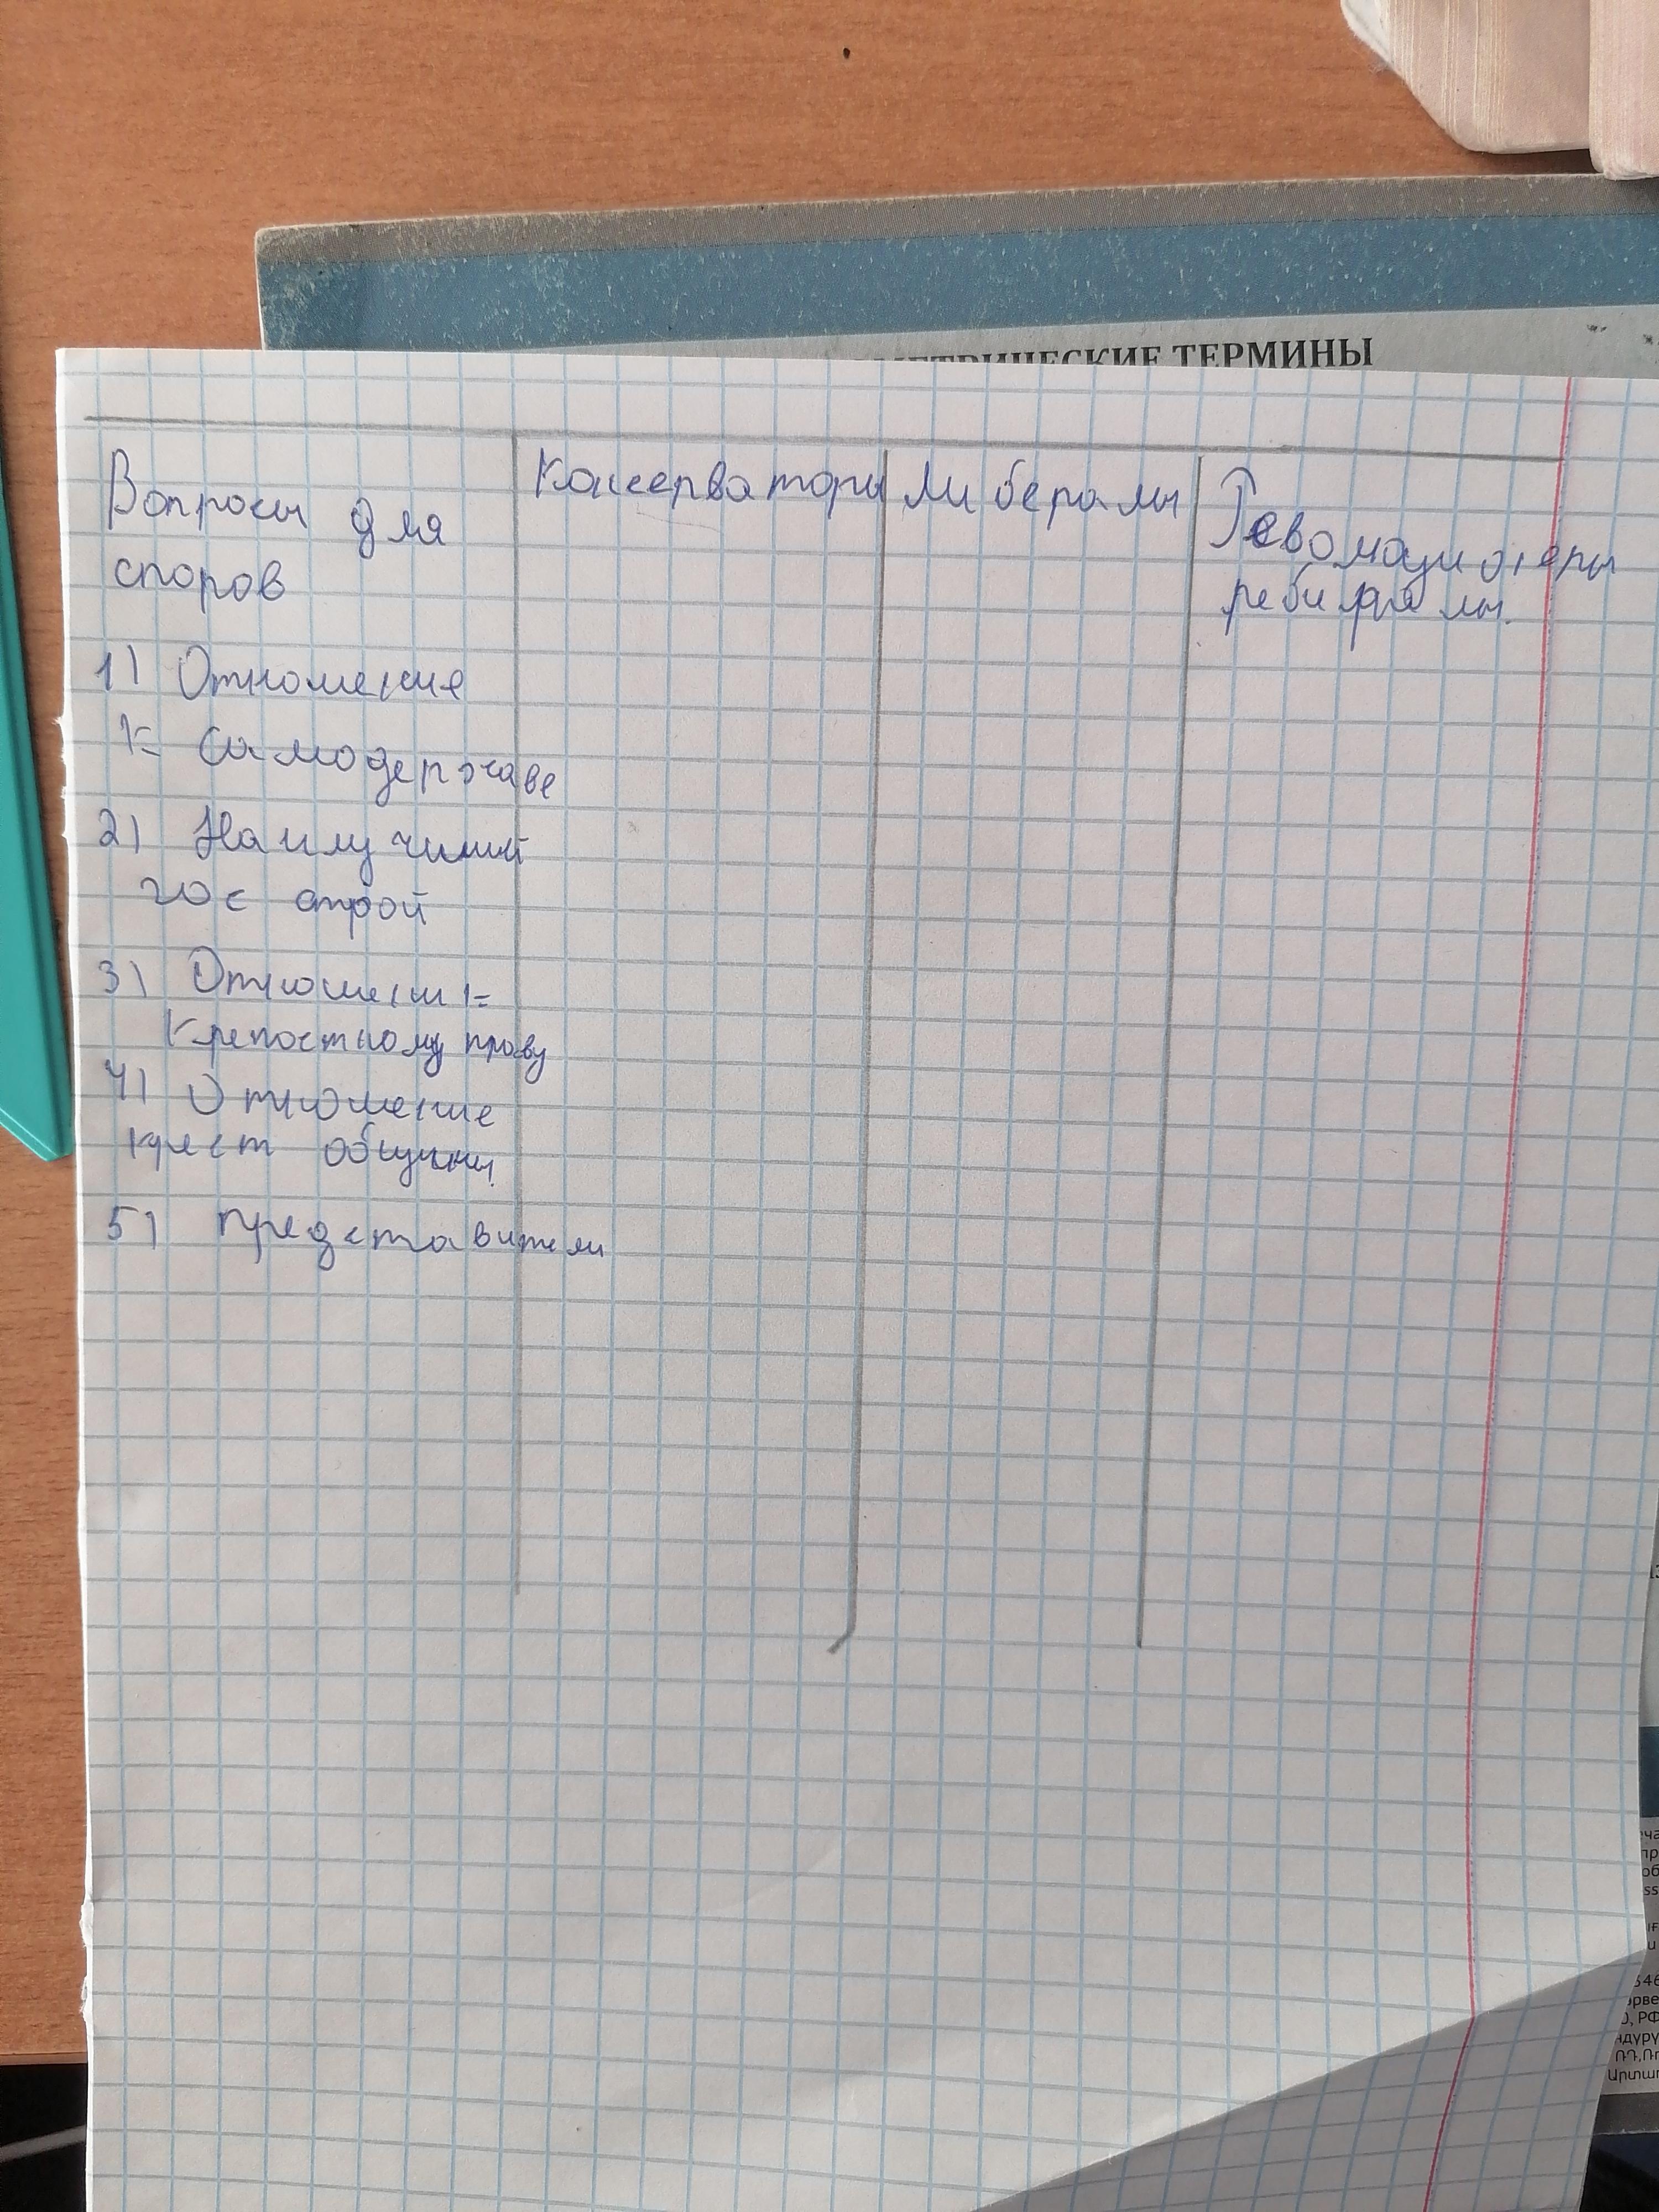 МЕТРИЧЕСКИЕ ТЕРМИНЫ
Вопросы для
споров
Консерваторы
Либералы
Революционеры
1) Отношение
к самодержаве
2) Наилучший
гос строй
3) Отношени к
крепостному праву
4) Отношение
крест общины
5) представители